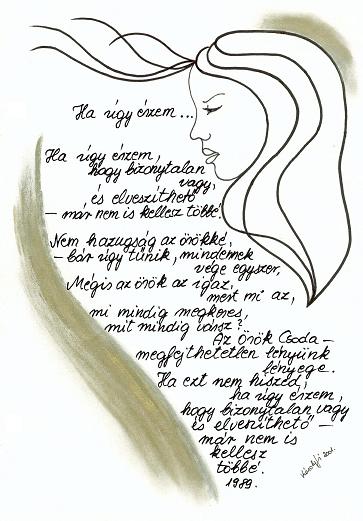 Ha úgy érzem...
Ha úgy érzem,
hogy bizonytalan
vagy,
és elveszíthető
– már nem is kellesz többé.
Nem hazugság az örökké,
– bár úgy tűnik, mindennek
vége egyszer.
Mégis az örök az igaz,
mert mi az,
mi mindig megkeres,
mit mindig vársz?..
Az örök Csoda –
megfejthetetlen lényünk
lényege.
Ha ezt nem hiszed,
ha úgy érzem,
hogy bizonytalan vagy
és elveszíthető –
már nem is
kellesz
többé.
1989.
2001.